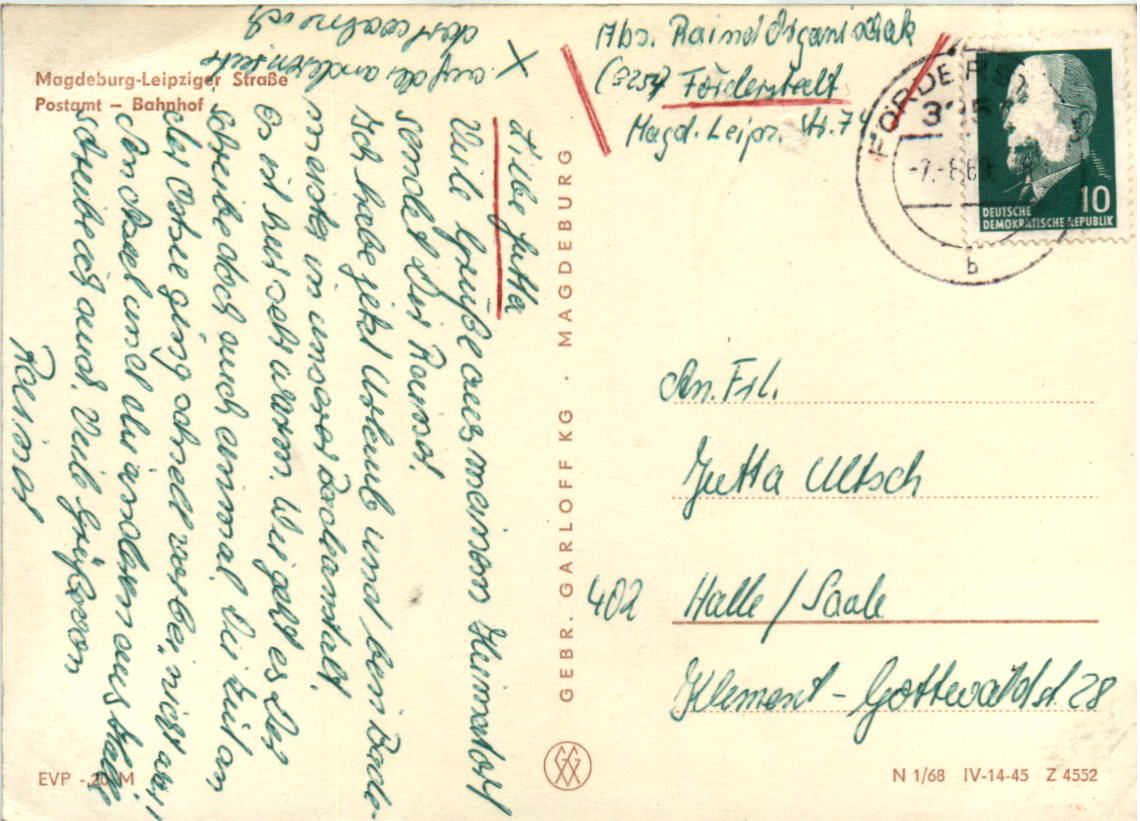 Magdeburg-Leipziger Straße
Postamt – Bahnhof
X auf der anderen Seite
dort wohne ich
Liebe Jutta
Viele Grüße aus meinem Heimatort
sendet Dir Raind.
Ich habe jetzt Urlaub und bin
meistens in unserer Badeanstalt.
Es ist hier sehr warm. Wie geht es Dir
schreibe doch auch einmal. Die Zeit an
der Ostsee ging schnell vorbei, nicht war!
Den und die anderen aus Halle
schreibe ich auch. Viele Grüße von
Raind
EVP -.20 M
GEBR. GARLOFF KG · MAGDEBURG
Abs. Raind Organischak
(3257) Förderstedt
Magd. Leipz. Str. 74
FÖRDERST
325
-7.-8.69
b
10
DEUTSCHE
DEMOKRATISCHE REPUBLIK
An. Frl.
Jutta Ultsch
402 Halle / Saale
Klement-Gottwaldst. 28
N 1/68 IV-14-45 Z 4552